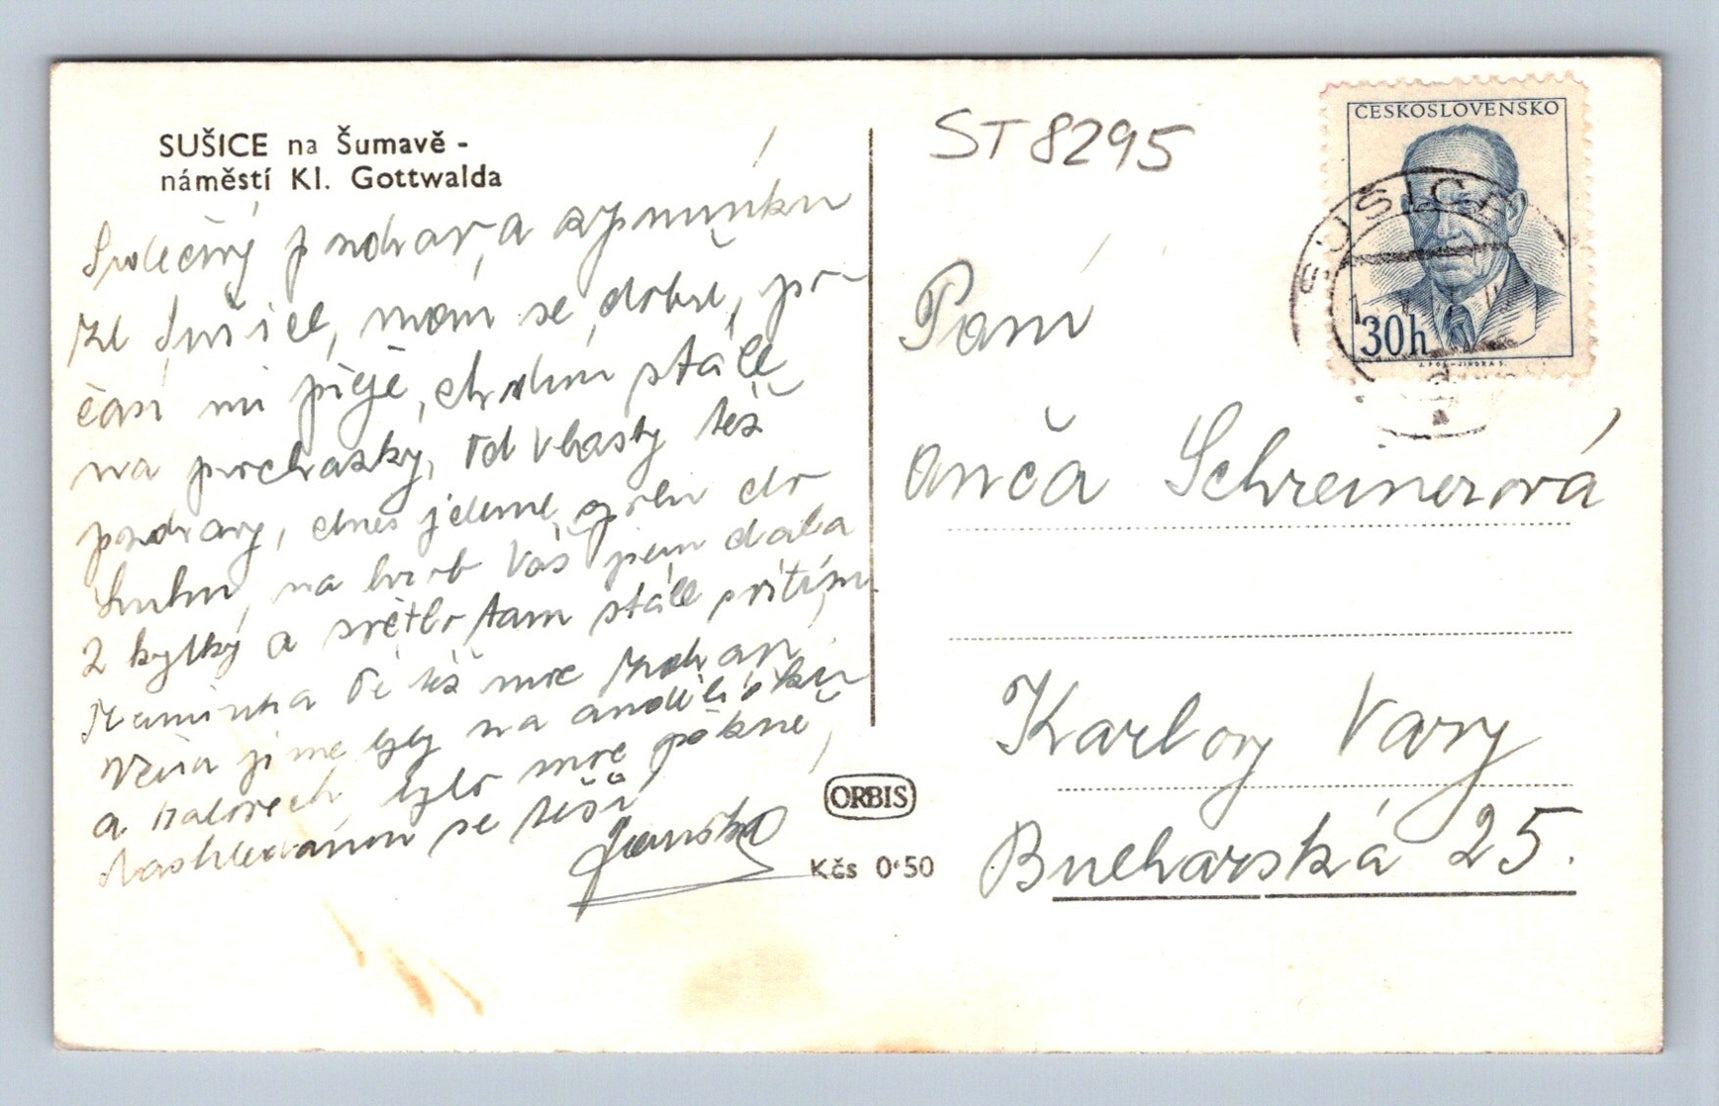 SUŠICE na Šumavě -
náměstí Kl. Gottwalda
Srdečný pozdrav a vzpomínku
ze Sušice, mám se dobře, po-
časí mi přeje, chodím stále
na procházky, od Vlasty též
pozdravy, dnes jedeme spolu do
na hrob Váš jsem dala
2 kytky a světlo tam stále svítím
Maminka Ti též moc
byly na andělíčku
a bylo moc pěkné,
Nashledanou se těší
Janička
ST 8295
ČESKOSLOVENSKO
30h
SUŠICE
Paní
Anča Schreinerová
Karlovy Vary
Bucharská 25.
ORBIS
Kčs 0·50